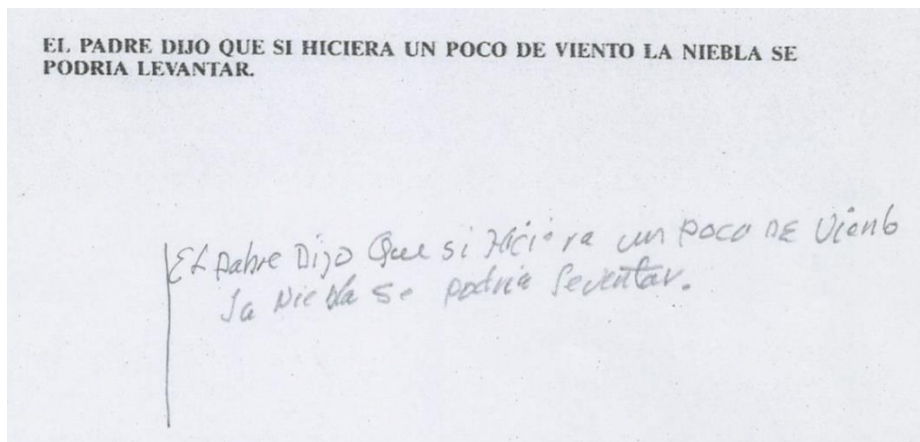 EL PADRE DIJO QUE SI HICIERA UN POCO DE VIENTO LA NIEBLA SE
PODRIA LEVANTAR.
El pabre Dijo Que si Hiciera un poco DE Viento
la Niebla Se podria leventar.